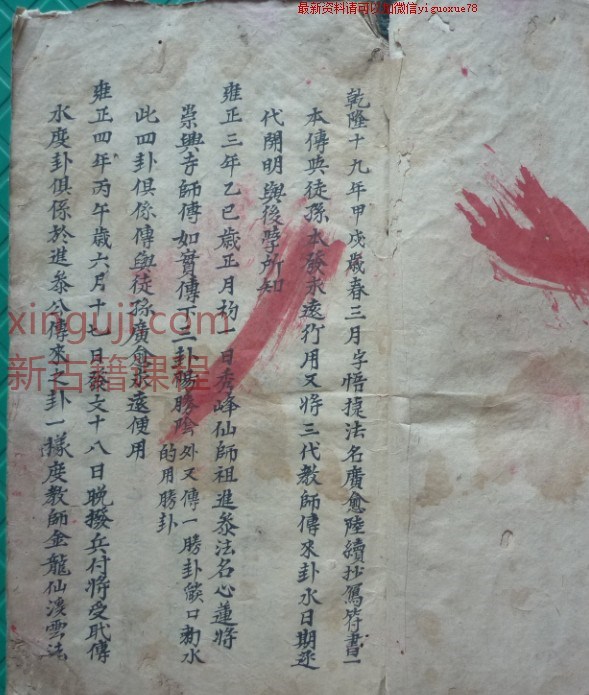 最新资料请可以加微信yiguoxue78
乾隆十九年甲戌歲春三月字悟捷法名廣愈陸續抄寫符書一
本傳與徒孫本發永遠行用又將三代教師傳來卦水日期逐
代開明與後學所知
雍正三年乙巳歲正月初一日秀峰仙師祖進參法名心蓮將
崇興寺師傳如實傳下三卦楊勝陰外又傳一勝卦燄口勅水
的用勝卦
此四卦俱係傳與徒孫廣愈永遠使用
雍正四年丙午歲六月十七日發文十八日晚撥兵付將受職傳
水度卦俱係於進參公傳來之卦一樣度教師金龍仙溪雲法
xinguji.com
新古籍课程